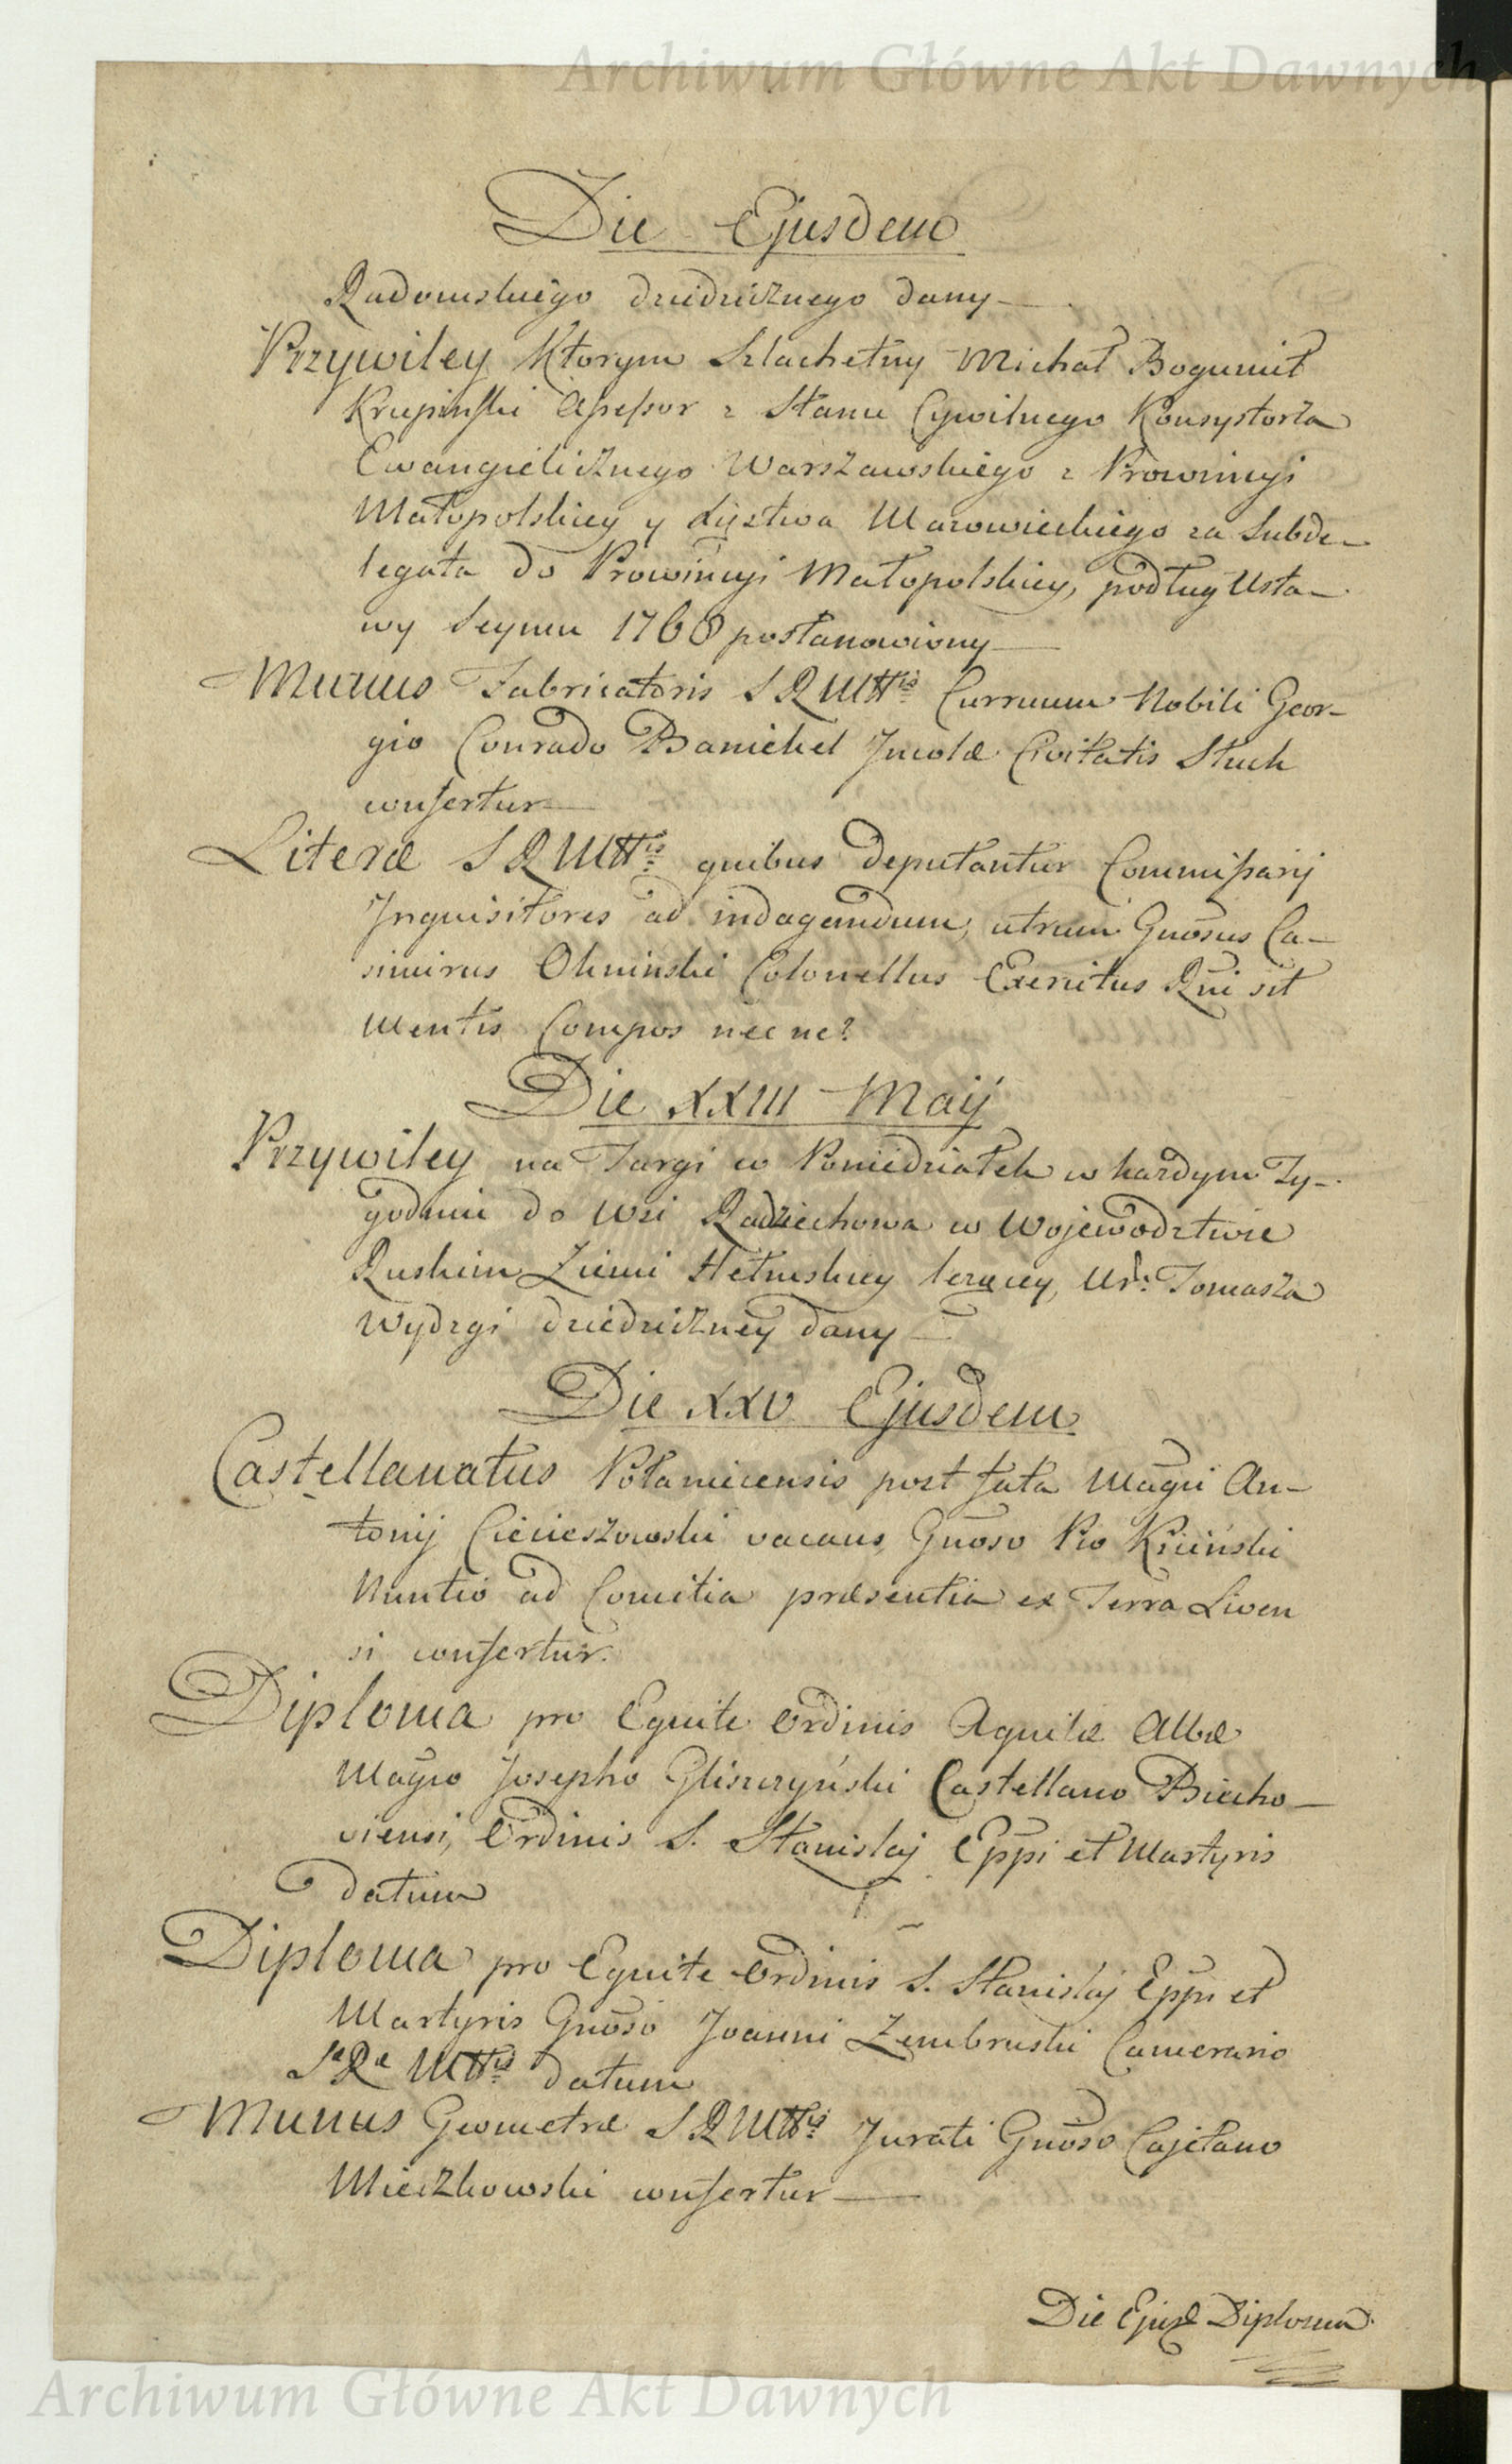 Archiwum Główne Akt Dawnych
Die Ejusdem
Radomskiego dziedzicznego dany
Przywiley Ktorym Szlachetny Michał Bogumił
Krupiński Assessor z Stanu Cywilnego Konsystorza
Ewangielicznego Warszawskiego z Prowincyi
Małopolskiey y Xięstwa Mazowieckiego za Subde-
legata do Prowincyi Małopolskiey, podług Usta-
wy Seymu 1768 postanowiony
Munus Fabricatoris S R Mttis Curruum Nobili Geor-
gio Conrado Banickel Incolæ Civitatis Stuck
confertur
Literæ S R Mttis quibus deputantur Commissarij
Inquisitores ad indagandum, utrum Gnosus Ca-
simirus Okninski Colonellus Exercitus Rni sit
mentis Compos nec ne?
Die XXIII Maij
Przywiley na Targi w Poniedziałek w każdym Ty-
godniu do Wsi Radziechowa w Wojewodztwie
Ruskim Ziemi Hełmskiey leżącey, Ur: Tomasza
Wydzgi dziedziczney dany
Die XXV Ejusdem
Castellanatus Połanicensis post fata Magni An-
tonij Ciecieszowski vacans, Gnoso Pio Kiciński
Nuntio ad Comitia præsentia ex Terra Liven
si confertur.
Diploma pro Equite Ordinis Aquilæ Albæ
Magno Josepho Gliszczyński Castellano Biecho-
viensi, Ordinis S. Stanislaj Eppi et Martyris
datum
Diploma pro Equite Ordinis S. Stanislaj Eppi et
Martyris Gnoso Joanni Zembruski Camerario
Sæ Ræ Mttis datum
Munus Geometræ S R Mttis Jurati Gnoso Cajetano
Mieczkowski confertur
Die Ejusd Diploma
Archiwum Główne Akt Dawnych